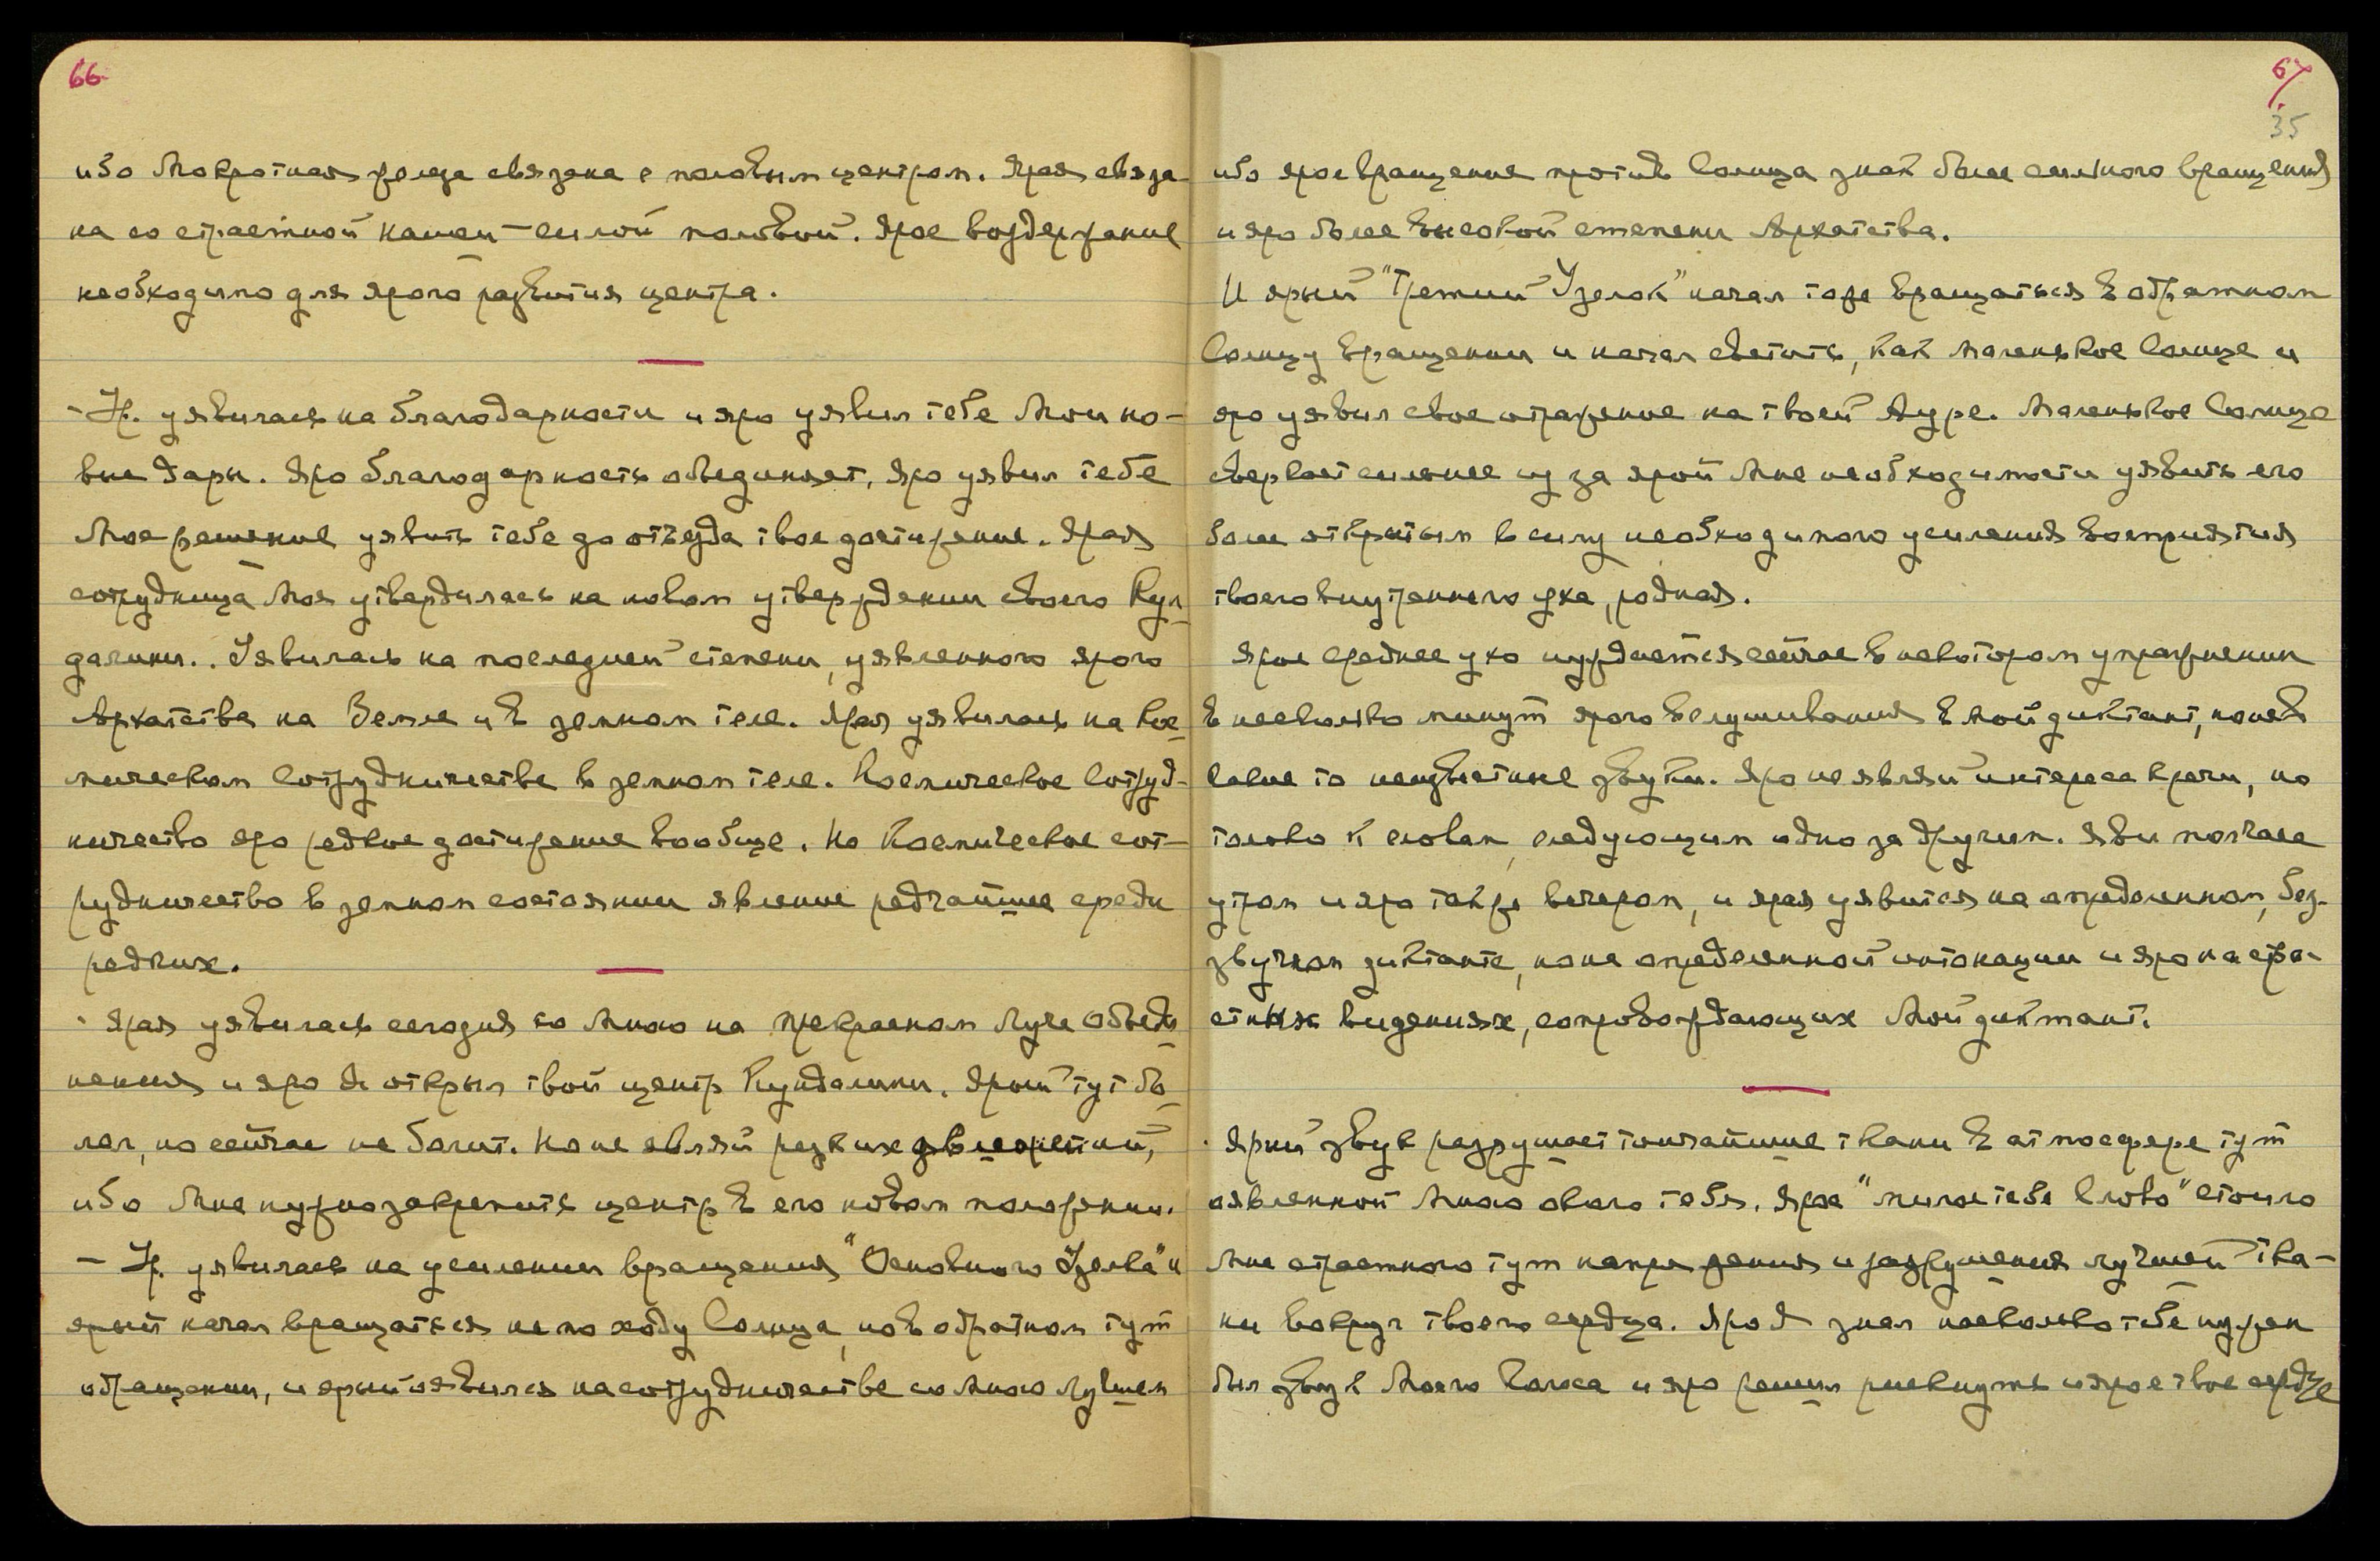 66
ибо Мокротная железа связана с половым центром. Ярая связа-
на со страстной нашей силой половой. Ярое воздержание
необходимо для ярого развития центра.
- Ур. уявилась на благодарности и яро уявил тебе Мои но-
вые дары. Яро благодарность объединяет, яро уявил тебе
Мое решение уявить тебе до отъезда твое достижение. Ярая
сотрудница Моя утвердилась на новом утверждении своего Кун-
далини.. Уявилась на последней степени, уявленного ярого
Архатства на Земле и в земном теле. Ярая уявилась на Кос-
мическом Сотрудничестве в земном теле. Космическое Сотруд-
ничество яро редкое достижение вообще. Но Космическое сот-
рудничество в земном состоянии явление редчайшее среди
редких.
· Ярая уявилась сегодня со Мною на прекрасном Луче Объеди-
нения и яро Я открыл твой центр Кундалини. Ярый тут бо-
лел, но сейчас не болит. Но не являй резких движений,
ибо Мне нужно закрепить центр в его новом положении.
- Ур. уявилась на усилении вращения "Основного Узелка" и
ярый начал вращаться не по ходу Солнца, но в обратном тут
обращении, и ярый оявился на сотрудничестве со Мною лучшем
67
35
ибо ярое вращение против Солнца знак более сильного вращения
и яро более высокой степени Архатства.
И ярый "Третий Узелок" начал тоже вращаться в обратном
Солнцу вращении и начал светить, как маленькое Солнце и
яро уявил свое отражение на твоей Ауре. Маленькое Солнце
сверкает сильнее из за ярой Мне необходимости уявить его
более открытым в силу необходимого усиления восприятия
твоего внутреннего уха, родная.
Ярое среднее ухо нуждается сейчас в некотором упражнении
в несколько минут ярого вслушивания в Мой диктант, не в
какие то неизвестные звуки. Яро не являй интереса к речи, но
только к словам, следующим одно за другим. Яви полчаса
утром и яро также вечером, и ярая уявится на определенном, без-
звучном диктанте, но не определенной интонации и яро на стра-
стных видениях, сопровождающих Мой диктант.
· Ярый звук разрушает тончайшие ткани в атмосфере тут
оявленной Мною около тебя. Ярое "милое тебе Слово" стоило
Мне страстного тут напряжения и разрушения лучшей тка-
ни вокруг твоего сердца. Яро Я знал насколько тебе нужен
был звук Моего Голоса и яро решил рискнуть и ярое твое сердце